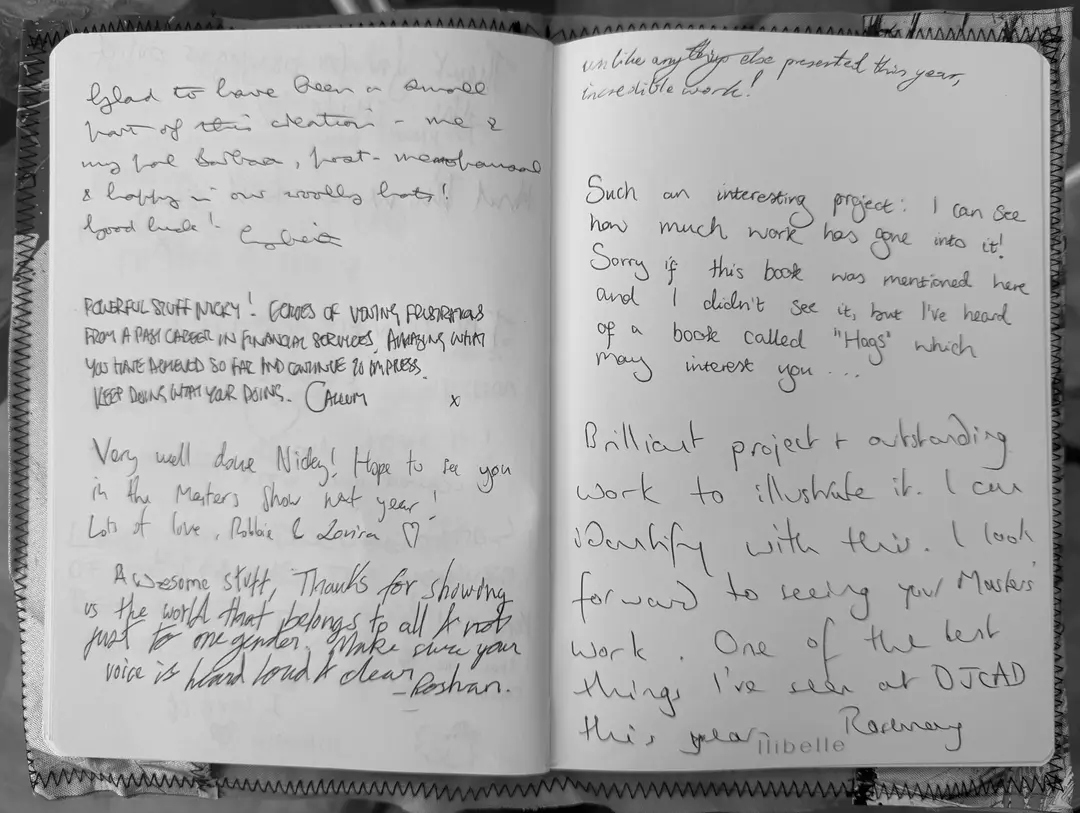 Glad to have been a small
part of this creation - me &
my pal Barbara, post-menopausal
& happy in our woolly hats!
Good luck!
POWERFUL STUFF NICKY! ECHOES OF VENTING FRUSTRATIONS
FROM A PAST CAREER IN FINANCIAL SERVICES. AMAZING WHAT
YOU HAVE ACHIEVED SO FAR AND CONTINUE TO IMPRESS.
KEEP DOING WHAT YOUR DOING. CALLUM x
Very well done Nicky! Hope to see you
in the Masters Show next year!
Lots of love, Robbie & Lovisa ♡
Awesome stuff, Thanks for showing
us the world that belongs to all & not
just to one gender. Make sure your
voice is heard loud & clear
- Roshan.
unlike anything else presented this year,
incredible work!
Such an interesting project: I can see
how much work has gone into it!
Sorry if this book was mentioned here
and I didn't see it, but I've heard
of a book called "Hags" which
may interest you ...
Brilliant project + outstanding
work to illustrate it. I can
identify with this. I look
forward to seeing your Masters'
work. One of the best
things I've seen at DJCAD
this year. Rosemary
llibelle